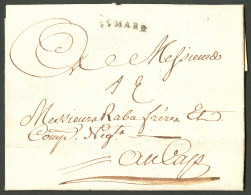 St MARC
A Messieurs
Messieurs Rabu frères Et
Comp. Negts
au Cap